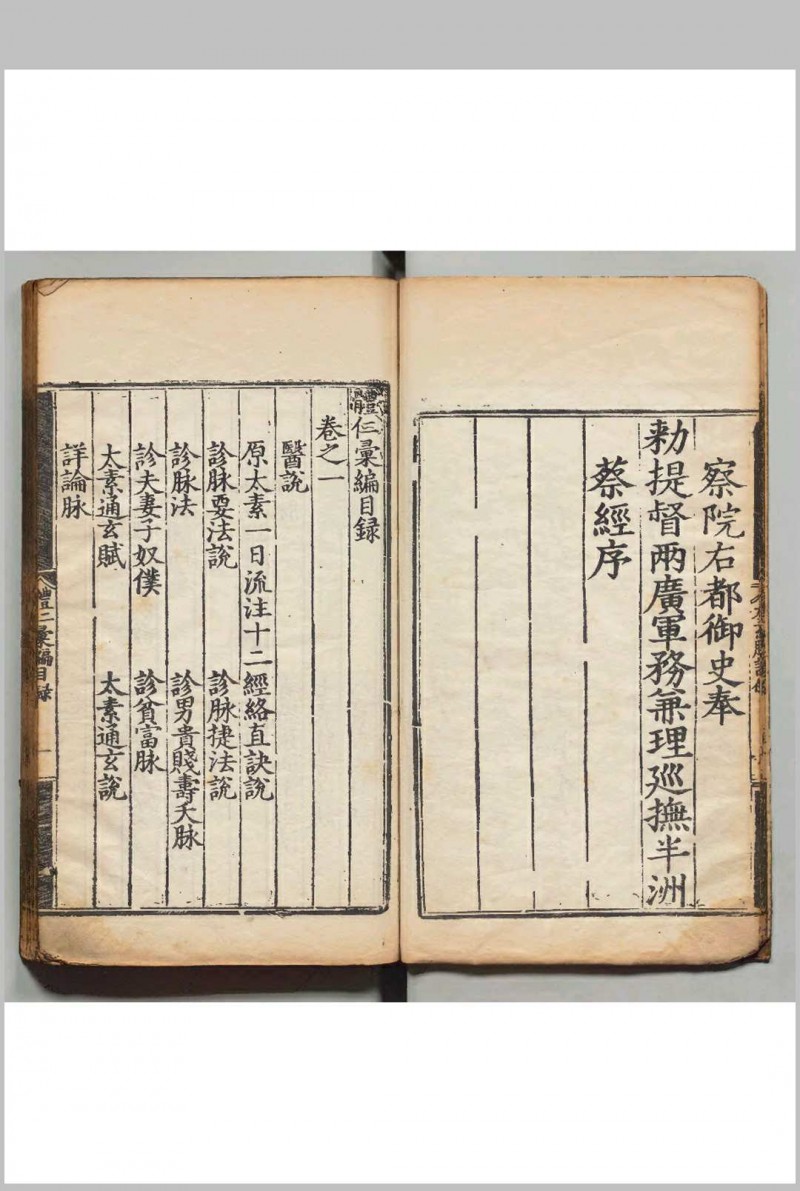 察院右都御史奉
勑提督兩廣軍務兼理廵撫半洲
蔡經序
體仁彙編目録
卷之一
醫說
原太素一日流注十二經絡直訣說
診脉要法說 診脉捷法說
診脉法 診男貴賤壽夭脉
診夫妻子奴僕 診貧富脉
太素通玄賦 太素通玄說
詳論脉
體仁彙編目録 一